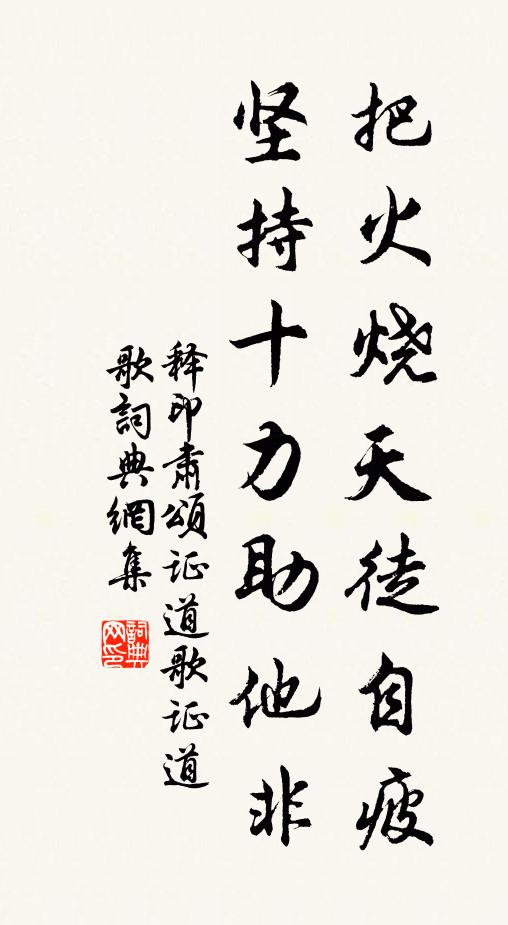 把火烧天徒自疲
坚持十力助他非
释印肃颂证道歌证道
歌詞典網集
詞典网印